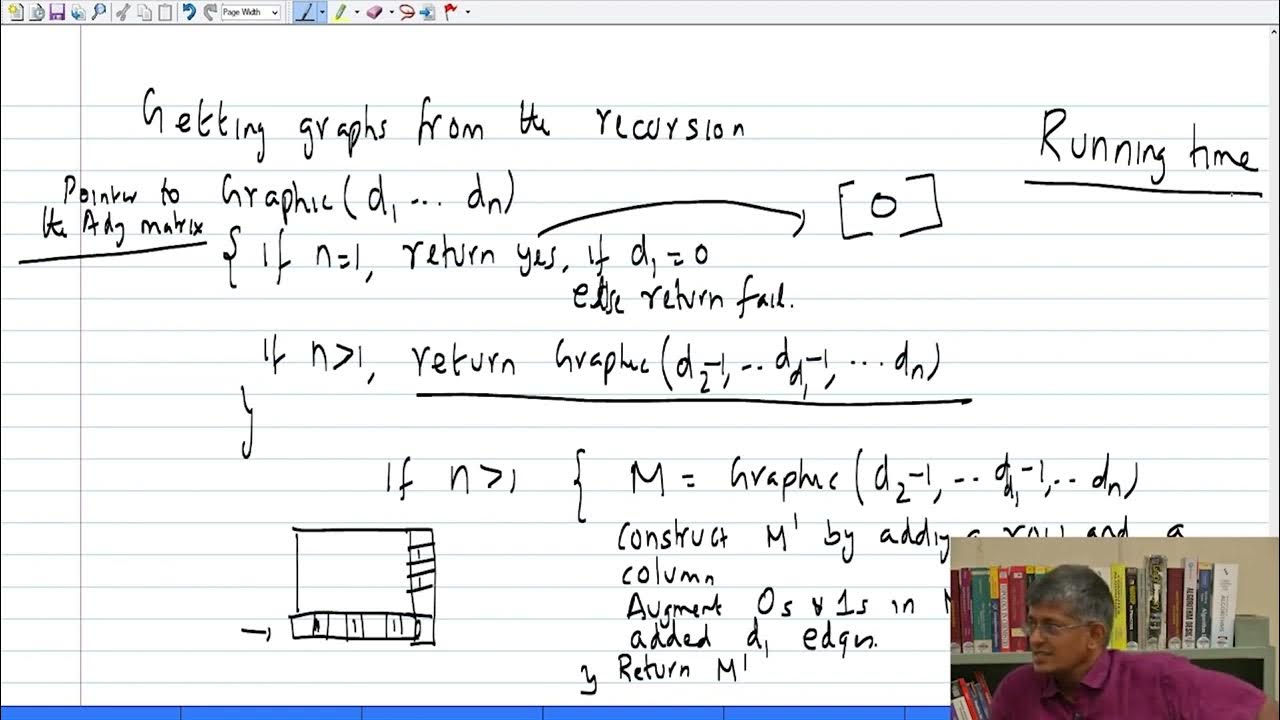 Page Width
Getting graphs from the recursion
Running time
Pointer to
the Adj matrix
Graphic(d₁ ... dₙ)
[0]
{ if n=1, return yes, if d₁ = 0
else return fail.
If n>1, return Graphic(d₂-1, .. d_d₁-1, ... dₙ)
}
If n>1 { M = Graphic(d₂-1, .. d_d₁-1, .. dₙ)
Construct M' by adding a row and a
column
Augment 0s & 1s in
added d₁ edges.
} Return M'
ALGORITHM DESIGN